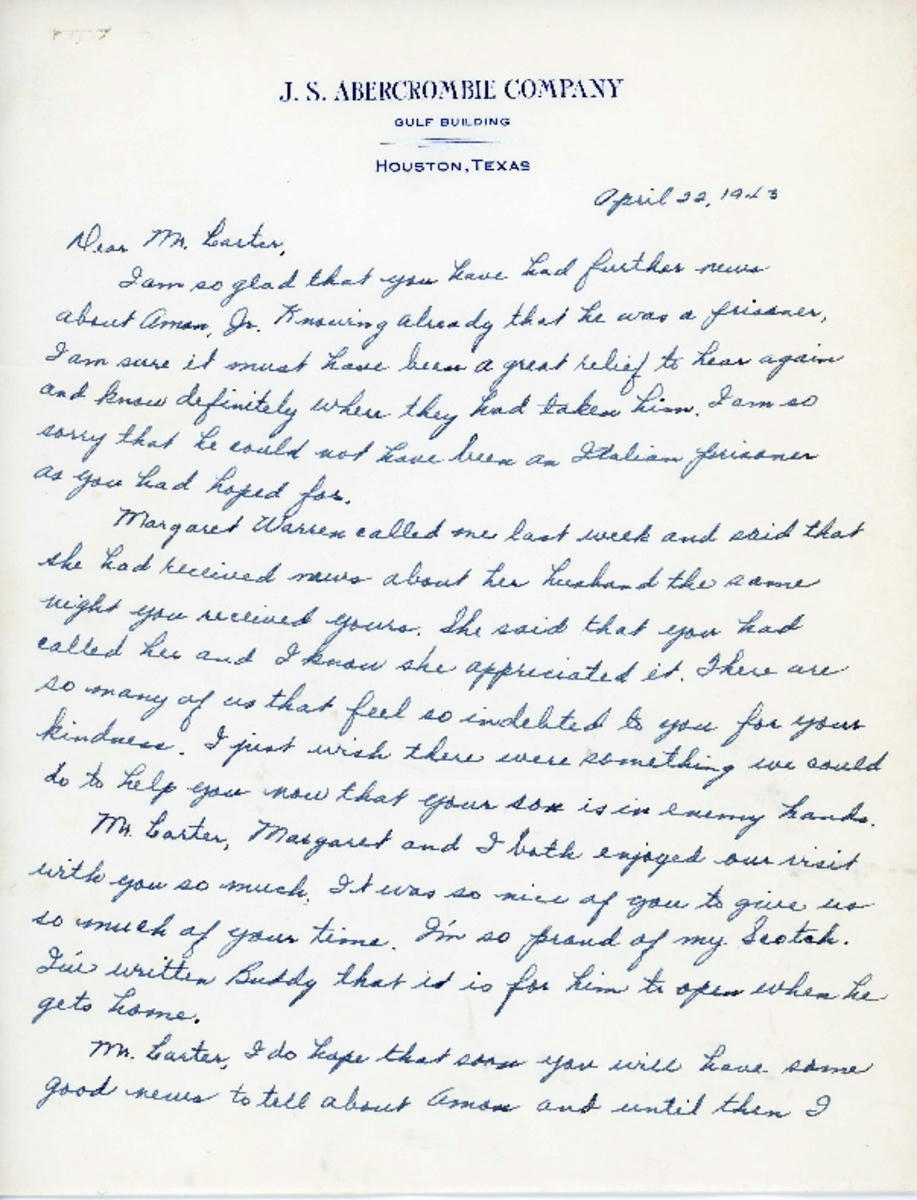 J. S. ABERCROMBIE COMPANY
GULF BUILDING
HOUSTON, TEXAS
April 22, 1943
Dear Mr. Carter,
I am so glad that you have had further news
about Amon, Jr. Knowing already that he was a prisoner,
I am sure it must have been a great relief to hear again
and know definitely where they had taken him. I am so
sorry that he could not have been an Italian prisoner
as you had hoped for.
Margaret Warren called me last week and said that
she had received news about her husband the same
night you received yours. She said that you had
called her and I know she appriciated it. There are
so many of us that feel so indebted to you for your
kindness. I just wish there were something we could
do to help you now that your son is in enemy hands.
Mr. Carter, Margaret and I both enjoyed our visit
with you so much. It was so nice of you to give us
so much of your time. I'm so proud of my Scotch.
I've written Buddy that it is for him to open when he
gets home.
Mr. Carter, I do hope that soon you will have some
good news to tell about Amon and until then I